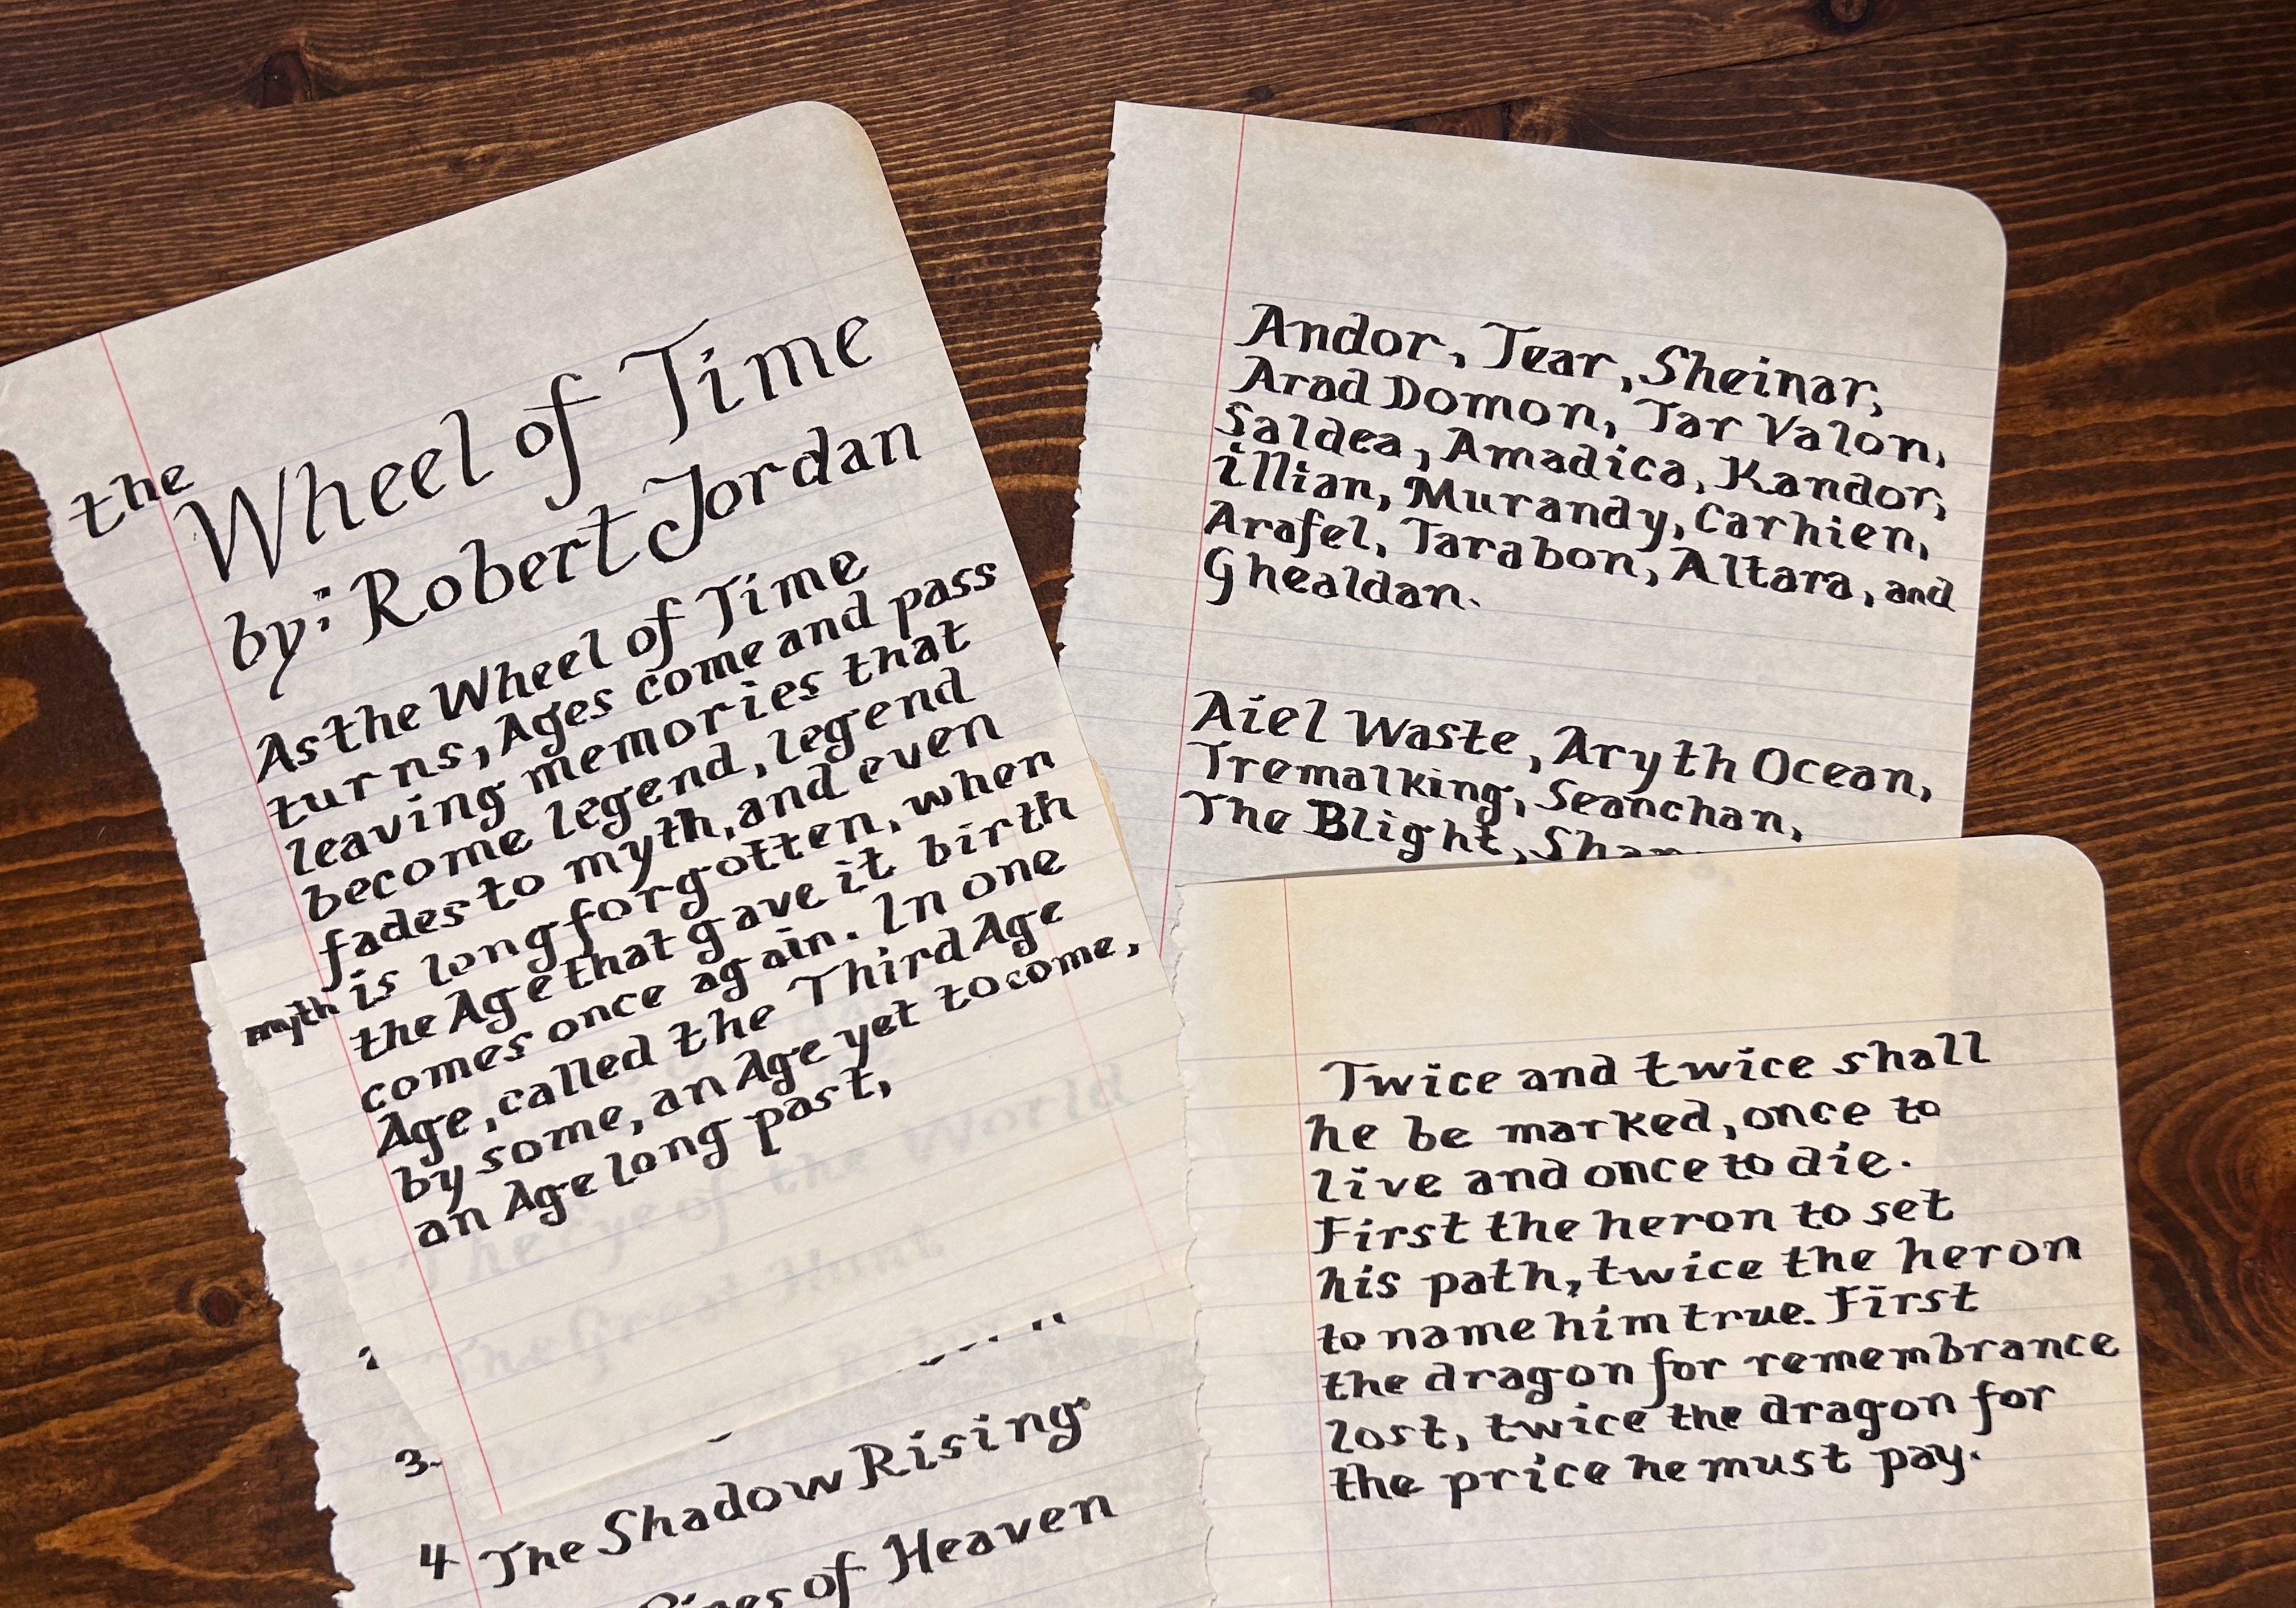 the Wheel of Time
by: Robert Jordan
As the Wheel of Time
turns, Ages come and pass
leaving memories that
become legend, legend
fades to myth, and even
myth is long forgotten, when
the Age that gave it birth
comes once again. In one
Age, called the Third Age
by some, an Age yet to come,
an Age long past,
The Eye of the World
The Great Hunt
3.
4 The Shadow Rising
of Heaven
Andor, Tear, Sheinar,
Arad Domon, Tar Valon,
Saldea, Amadica, Kandor,
illian, Murandy, Carhien,
Arafel, Tarabon, Altara, and
Ghealdan.
Aiel Waste, Aryth Ocean,
Tremalking, Seanchan,
The Blight,
Twice and twice shall
he be marked, once to
live and once to die.
First the heron to set
his path, twice the heron
to name him true. First
the dragon for remembrance
lost, twice the dragon for
the price he must pay.